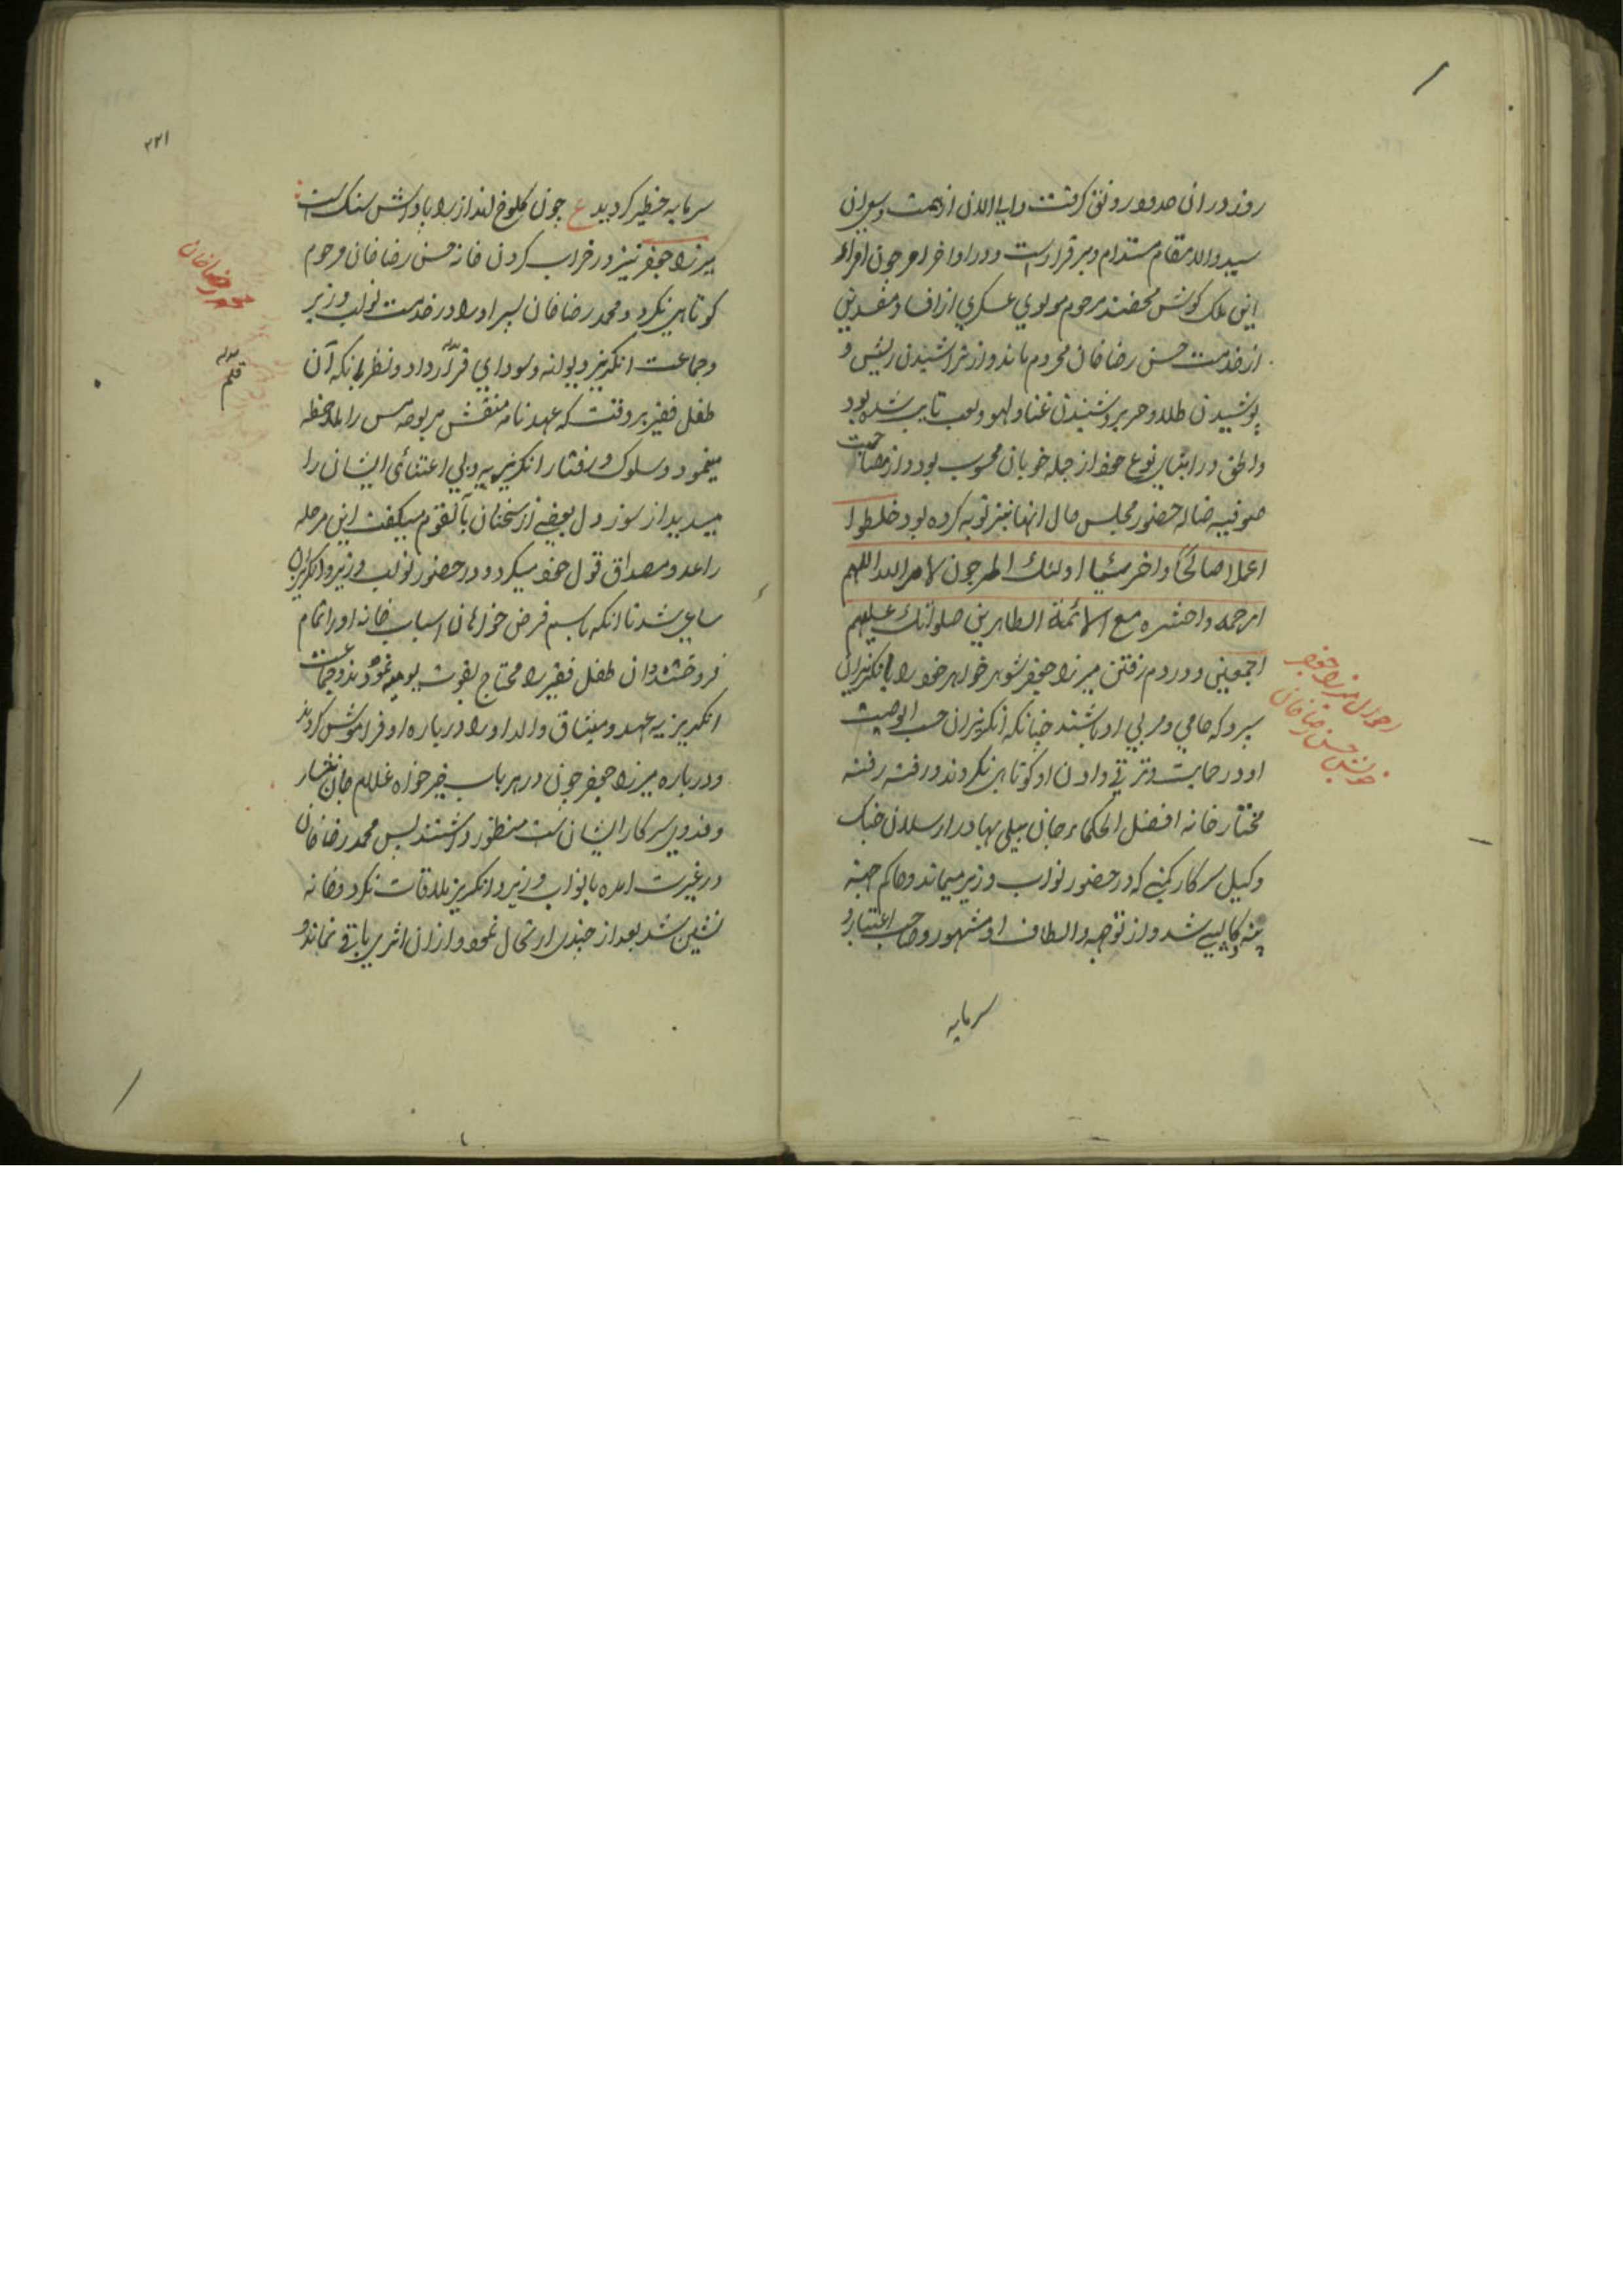 روز دران حدود رونق گرفت والی الان از همت و سوران
سید والا مقام مستدام و برقرار است و در اواخر عمر چون امراء
این ملک گوش محضند مرحوم مولوی عسکری از افساد مفسدین
از خدمت حسن رضا خان محروم ماند و از تراشیدن ریش و
پوشیدن طلا و حریر و شنیدن غنا و لهو و لعب تایب شده بود
و الحق در ابنای نوع خود از جمله خوبان محسوب بود و از مصاحبت
صوفیه ضاله حضور مجلس حال انها نیز توبه کرده بود خلطوا
عملا صالحا و اخر سیئا اولئك المرجون لامر الله اللهم
ارحمه واحشره مع الائمة الطاهرین صلواتك علیهم
اجمعین و در دم رفتن میرزا جعفر شوهر خواهر خود را بانگریزان
سپرد که حامی و مربی او باشند چنانکه انگریزان حسب الوصیت
او در حمایت و ترقی دادن او کوتاهی نکردند و رفته رفته
مختار خانه افضل الحکماء جان بیلی بهادر ارسلان جنگ
وکیل سرکار کمپنی که در حضور نواب وزیر میماند و حاکم
شد و از توجه و الطاف او مشهور و صاحب اعتبار و
سرمایه
احوال میرزا جعفر
خویش حسن رضا خان
۲۲۱
سرمایه خطیر گردید ع چون کلوخ انداز را پاداش سنگ است
میرزا جعفر نیز در خراب کردن خانه حسن رضا خان مرحوم
کوتاهی نکرد و محمد رضا خان پسر او را در خدمت نواب وزیر
و جماعت انگریز دیوانه و سودای قرار داد و نظر بانکه آن
طفل فقیر هر وقت که عهدنامه منقش بر لوحه مس را ملاحظه
مینمود و سلوک و رفتار انگریزیه و بی اعتنائی ایشان را
میدید از سوز دل بعضی از سخنان بآنقوم میگفت این مرحله
را عد و مصداق قول خود میکرد و در حضور نواب وزیر و انگریزان
ساعی شد تا انکه باسم قرض خواهان اسباب خانه او را تمام
فروخته و ان طفل فقیر را محتاج بقوت یومیه نمودند و جماعت
انگریزیه عهد و میثاق والد او را درباره او فراموش کردند
و درباره میرزا جعفر چون در هر باب خیرخواه غلام جان نثار
و فدوی سرکار ایشان ست منظور داشتند پس محمد رضا خان
در غیرت امده با نواب وزیر و انگریز ملاقات نکرد و خانه
نشین شد بعد از چندی ارتحال نمود و ازان اثری باقی نماند و
محمد رضا خان
قلم